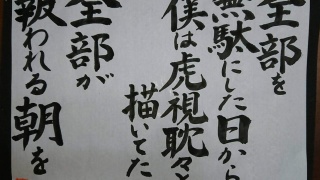 全部を
無駄にした日から
僕は虎視眈々と
描いてた
全部が
報われる朝を